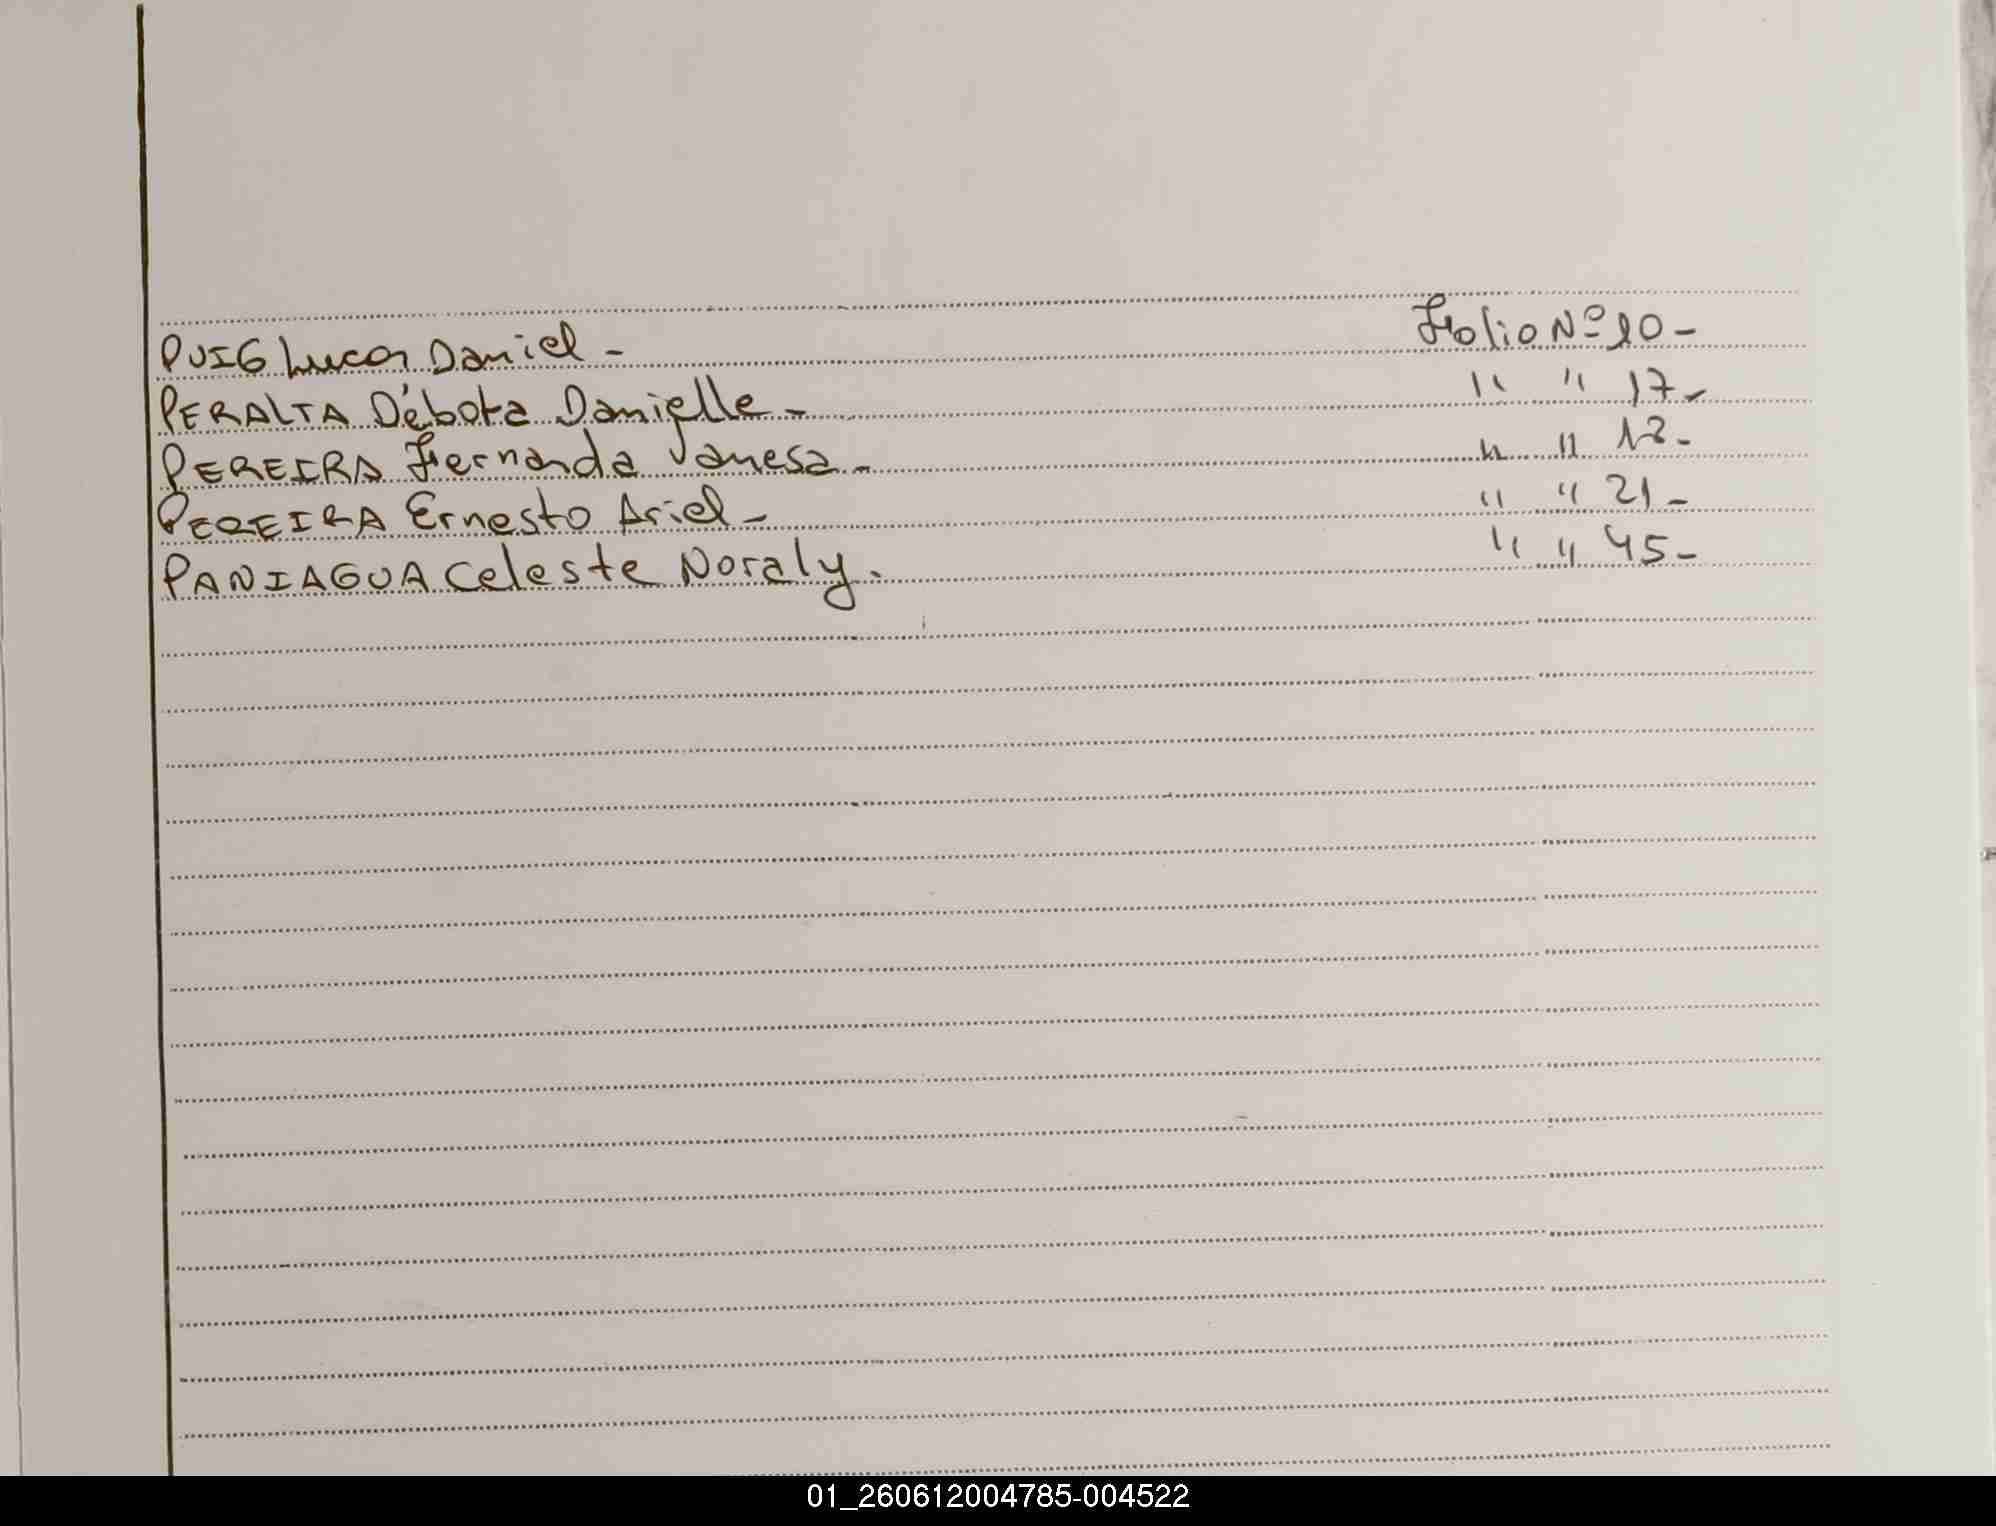 PUIG Lucas Daniel - Folio Nº 10 -
PERALTA Débora Danielle - " " 17 -
PEREIRA Fernanda Vanesa - " " 18 -
PEREIRA Ernesto Ariel - " " 21 -
PANIAGUA Celeste Noraly. " " 45 -
01_260612004785-004522